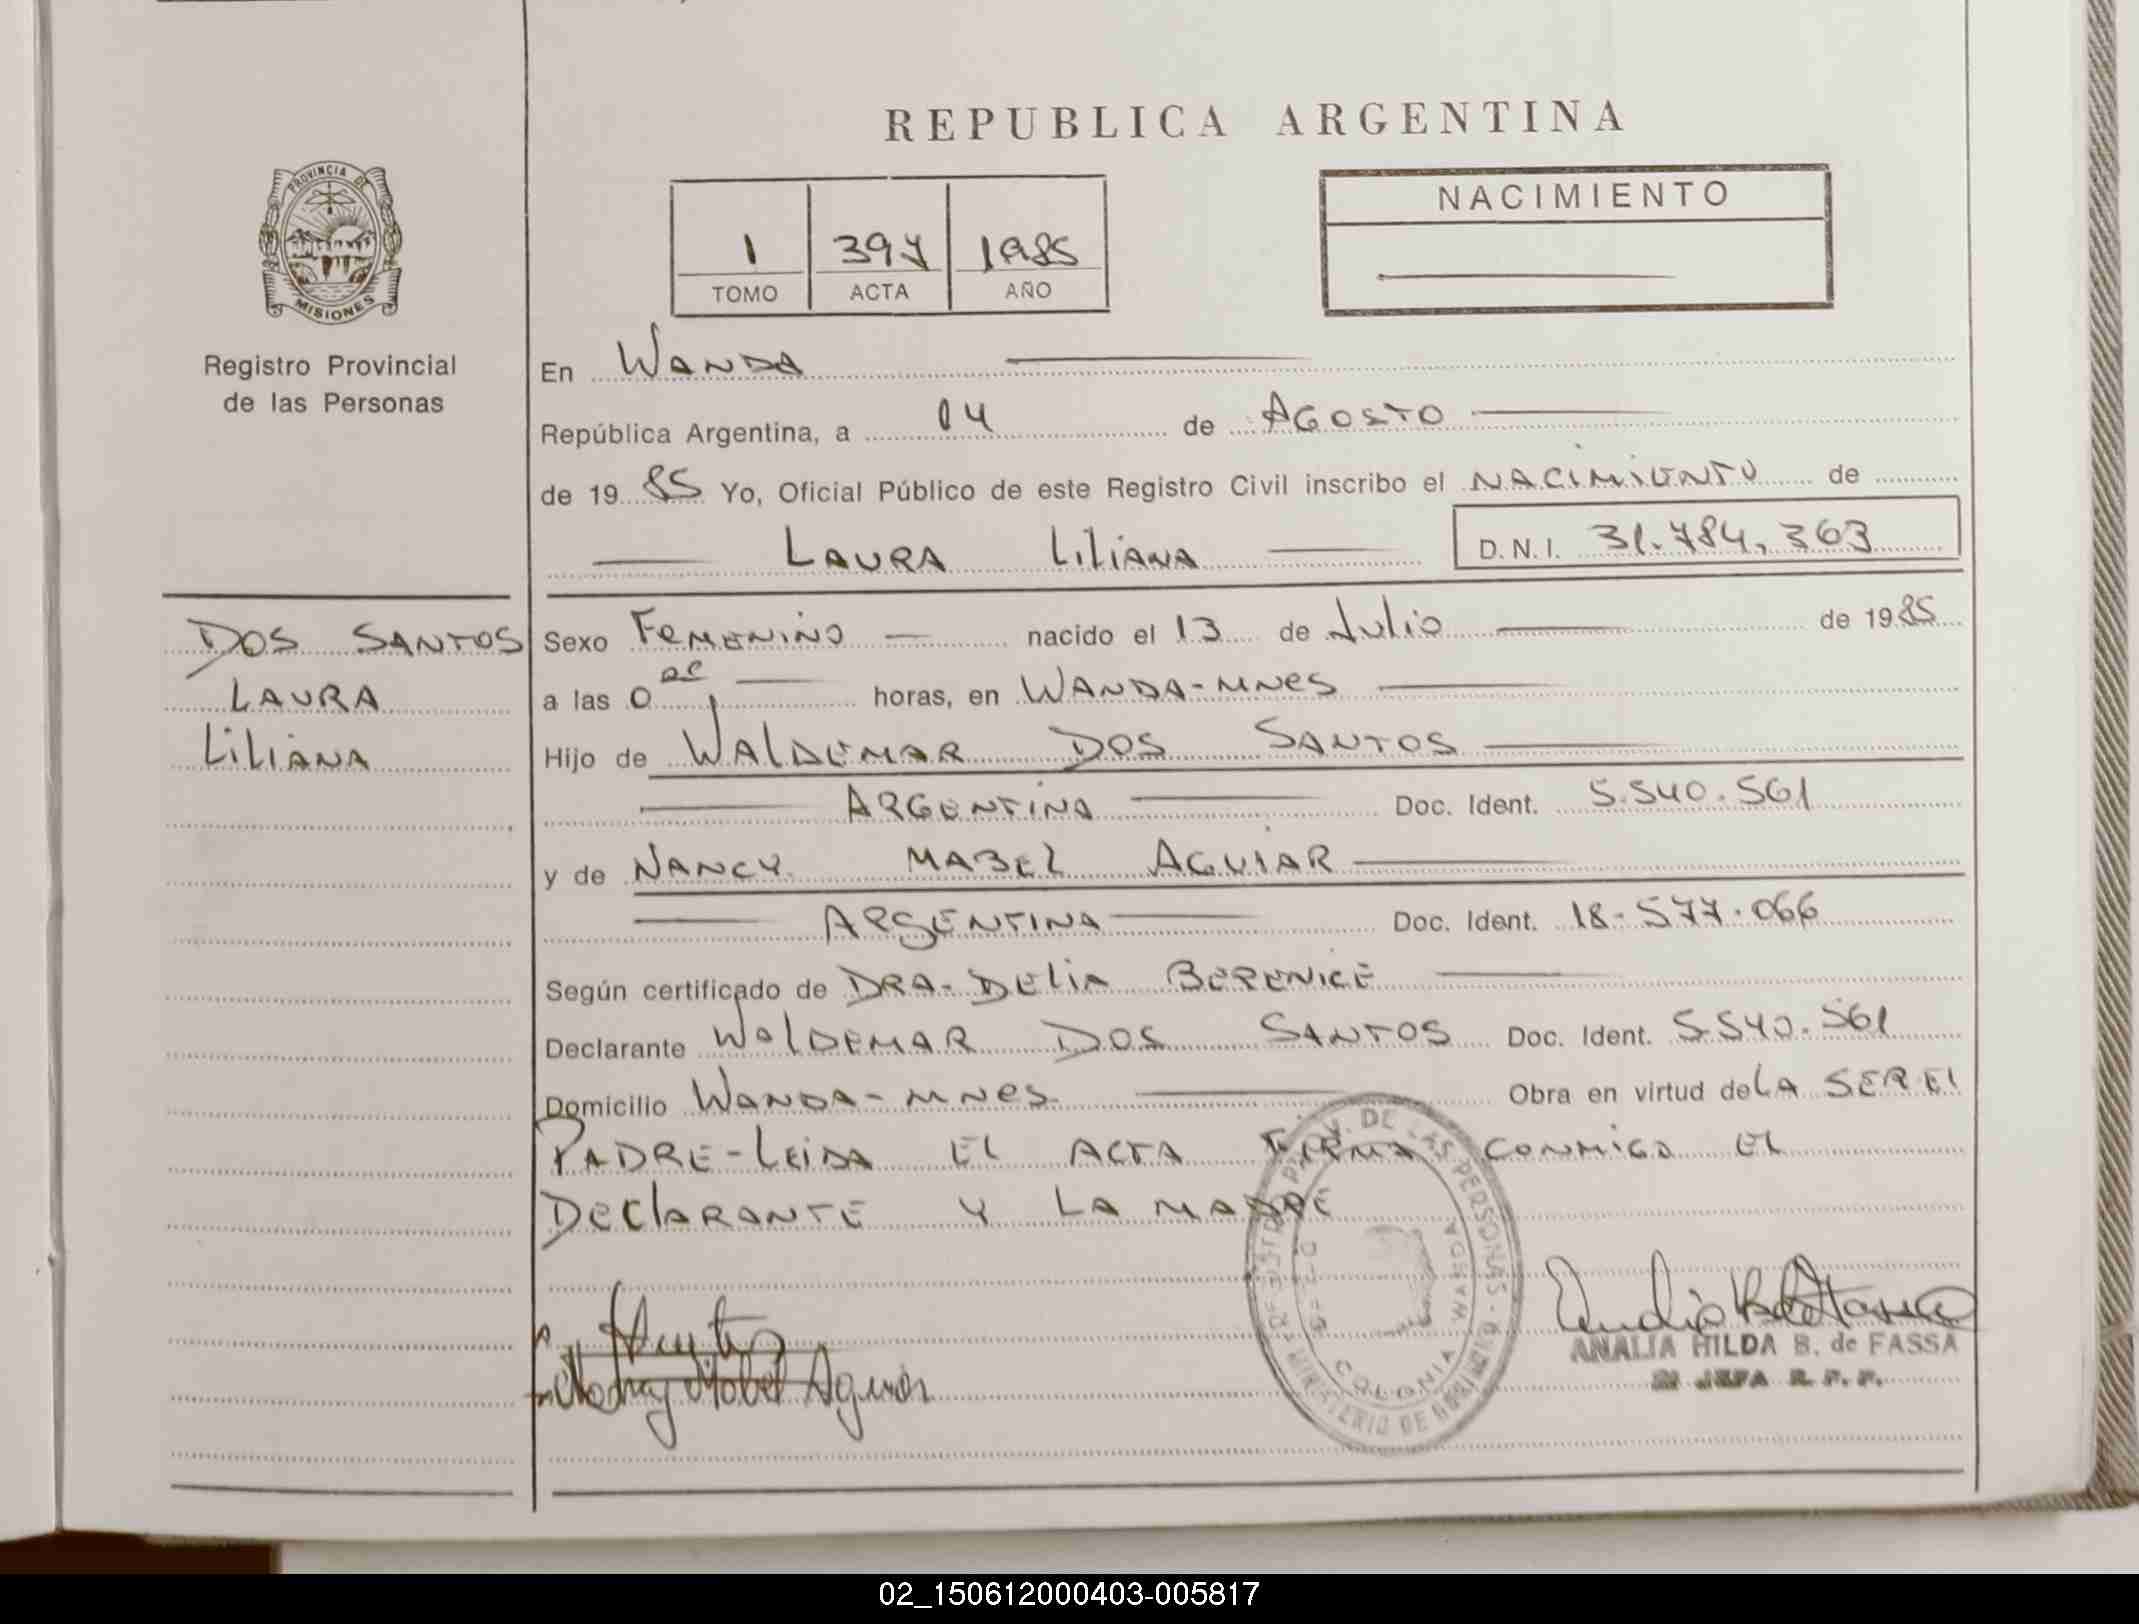 REPUBLICA ARGENTINA
PROVINCIA DE
MISIONES
Registro Provincial
de las Personas
1 397 1985
TOMO ACTA AÑO
NACIMIENTO
En WANDA
República Argentina, a 04 de AGOSTO
de 1985 Yo, Oficial Público de este Registro Civil inscribo el NACIMIENTO de
LAURA LILIANA D.N.I. 31.784.363
DOS SANTOS
LAURA
LILIANA
Sexo FEMENINO nacido el 13 de Julio de 1985
a las 0 horas, en WANDA-MNES
Hijo de WALDEMAR DOS SANTOS
ARGENTINA Doc. Ident. 5.540.561
y de NANCY MABEL AGUIAR
ARGENTINA Doc. Ident. 18.577.066
Según certificado de DRA. DELIA BERENICE
Declarante WALDEMAR DOS SANTOS Doc. Ident. 5.540.561
Domicilio WANDA-MNES Obra en virtud de LA SER EL
PADRE-LEIDA EL ACTA FIRMA CONMIGO EL
DECLARANTE Y LA MADRE
DE LAS PERSONAS
COLONIA WANDA
MINISTERIO DE GOBIERNO
Mabel Aguiar
ANALIA HILDA B. de FASSA
JEFA R. P. P.
02_150612000403-005817